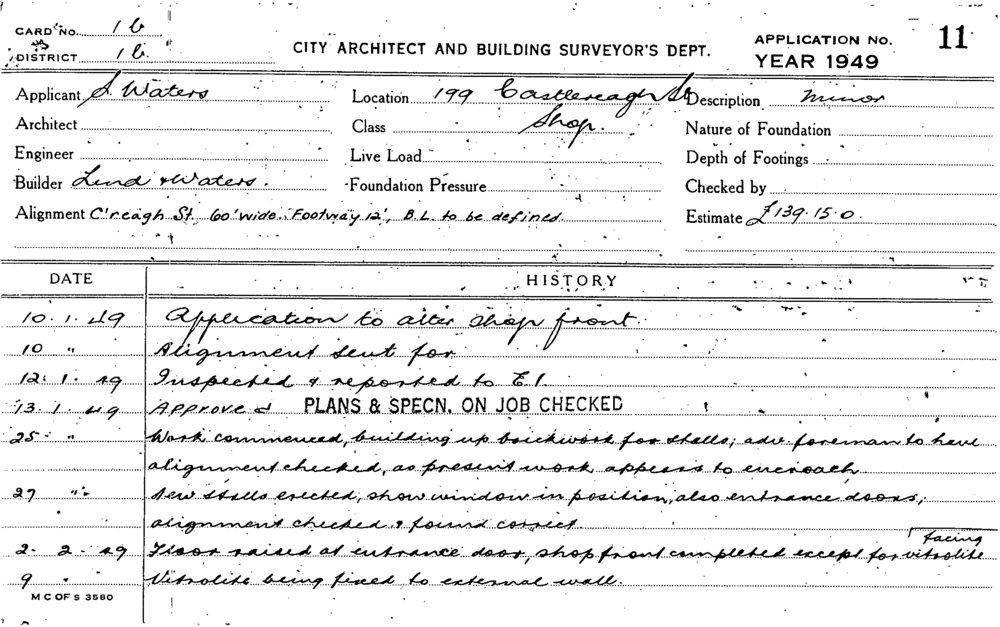 CARD No. 1b
DISTRICT 1b.
CITY ARCHITECT AND BUILDING SURVEYOR'S DEPT.
APPLICATION No. 11
YEAR 1949
Applicant S. Waters Location 199 Castlereagh St Description Minor
Architect Class Shop. Nature of Foundation
Engineer Live Load Depth of Footings
Builder Lind & Waters. Foundation Pressure Checked by
Alignment C'reagh St. 60' wide. Footway 12', B.L. to be defined. Estimate £139.15.0
DATE HISTORY
10.1.49 Application to alter shop front.
10 " Alignment sent for
12.1.49 Inspected & reported to E.I.
13.1.49 Approved PLANS & SPECN. ON JOB CHECKED
25 " Work commenced, building up brickwork for stalls; adv. foreman to have
alignment checked, as present work appears to encroach.
27 " New stalls erected, show window in position, also entrance doors;
alignment checked & found correct.
facing
2. 2. 49 Floor raised at entrance door, shop front completed except for vitrolite
9 " Vitrolite being fixed to external wall.
M C OF S 3580